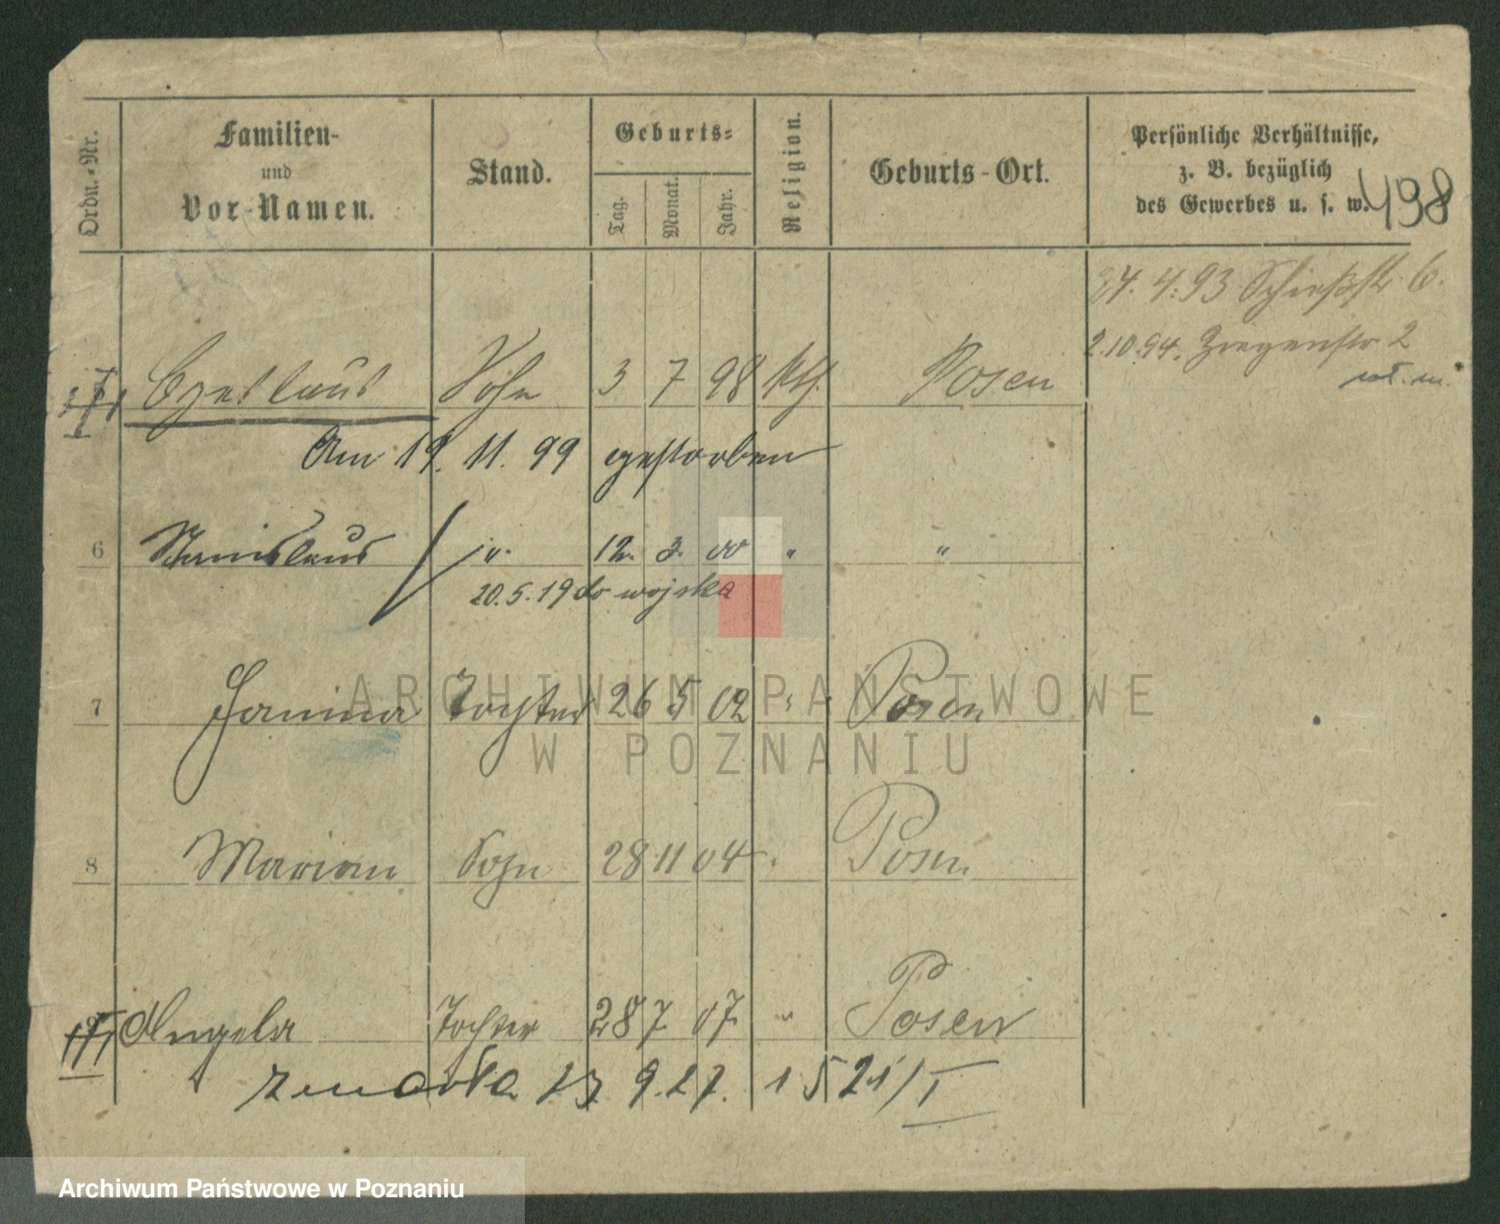 Ordn.-Nr.
Familien-
und
Vor-Namen.
Stand.
Geburts-
Tag. Monat. Jahr.
Religion.
Geburts-Ort.
Persönliche Verhältnisse,
z. B. bezüglich
des Gewerbes u. s. w.
498
4.93 Schießstr 6.
2.10.94. Ziegenstr 2
Czeslaus Sohn 3 7 98 kth. Posen
Am 19. 11. 99 gestorben
6 Stanislaus " 12. 3. 00 " "
20.5.19 do wojska
7 Janina Tochter 26 5 02 " Posen
8 Marian Sohn 28 11 04 " Posen
Angela Tochter 28 7 07 " Posen
zmarła 9.27. 1521/I
ARCHIWUM PAŃSTWOWE
W POZNANIU
Archiwum Państwowe w Poznaniu